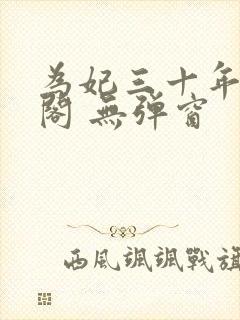 為妃三十年
閣 無彈窗
西風颯颯戰旗